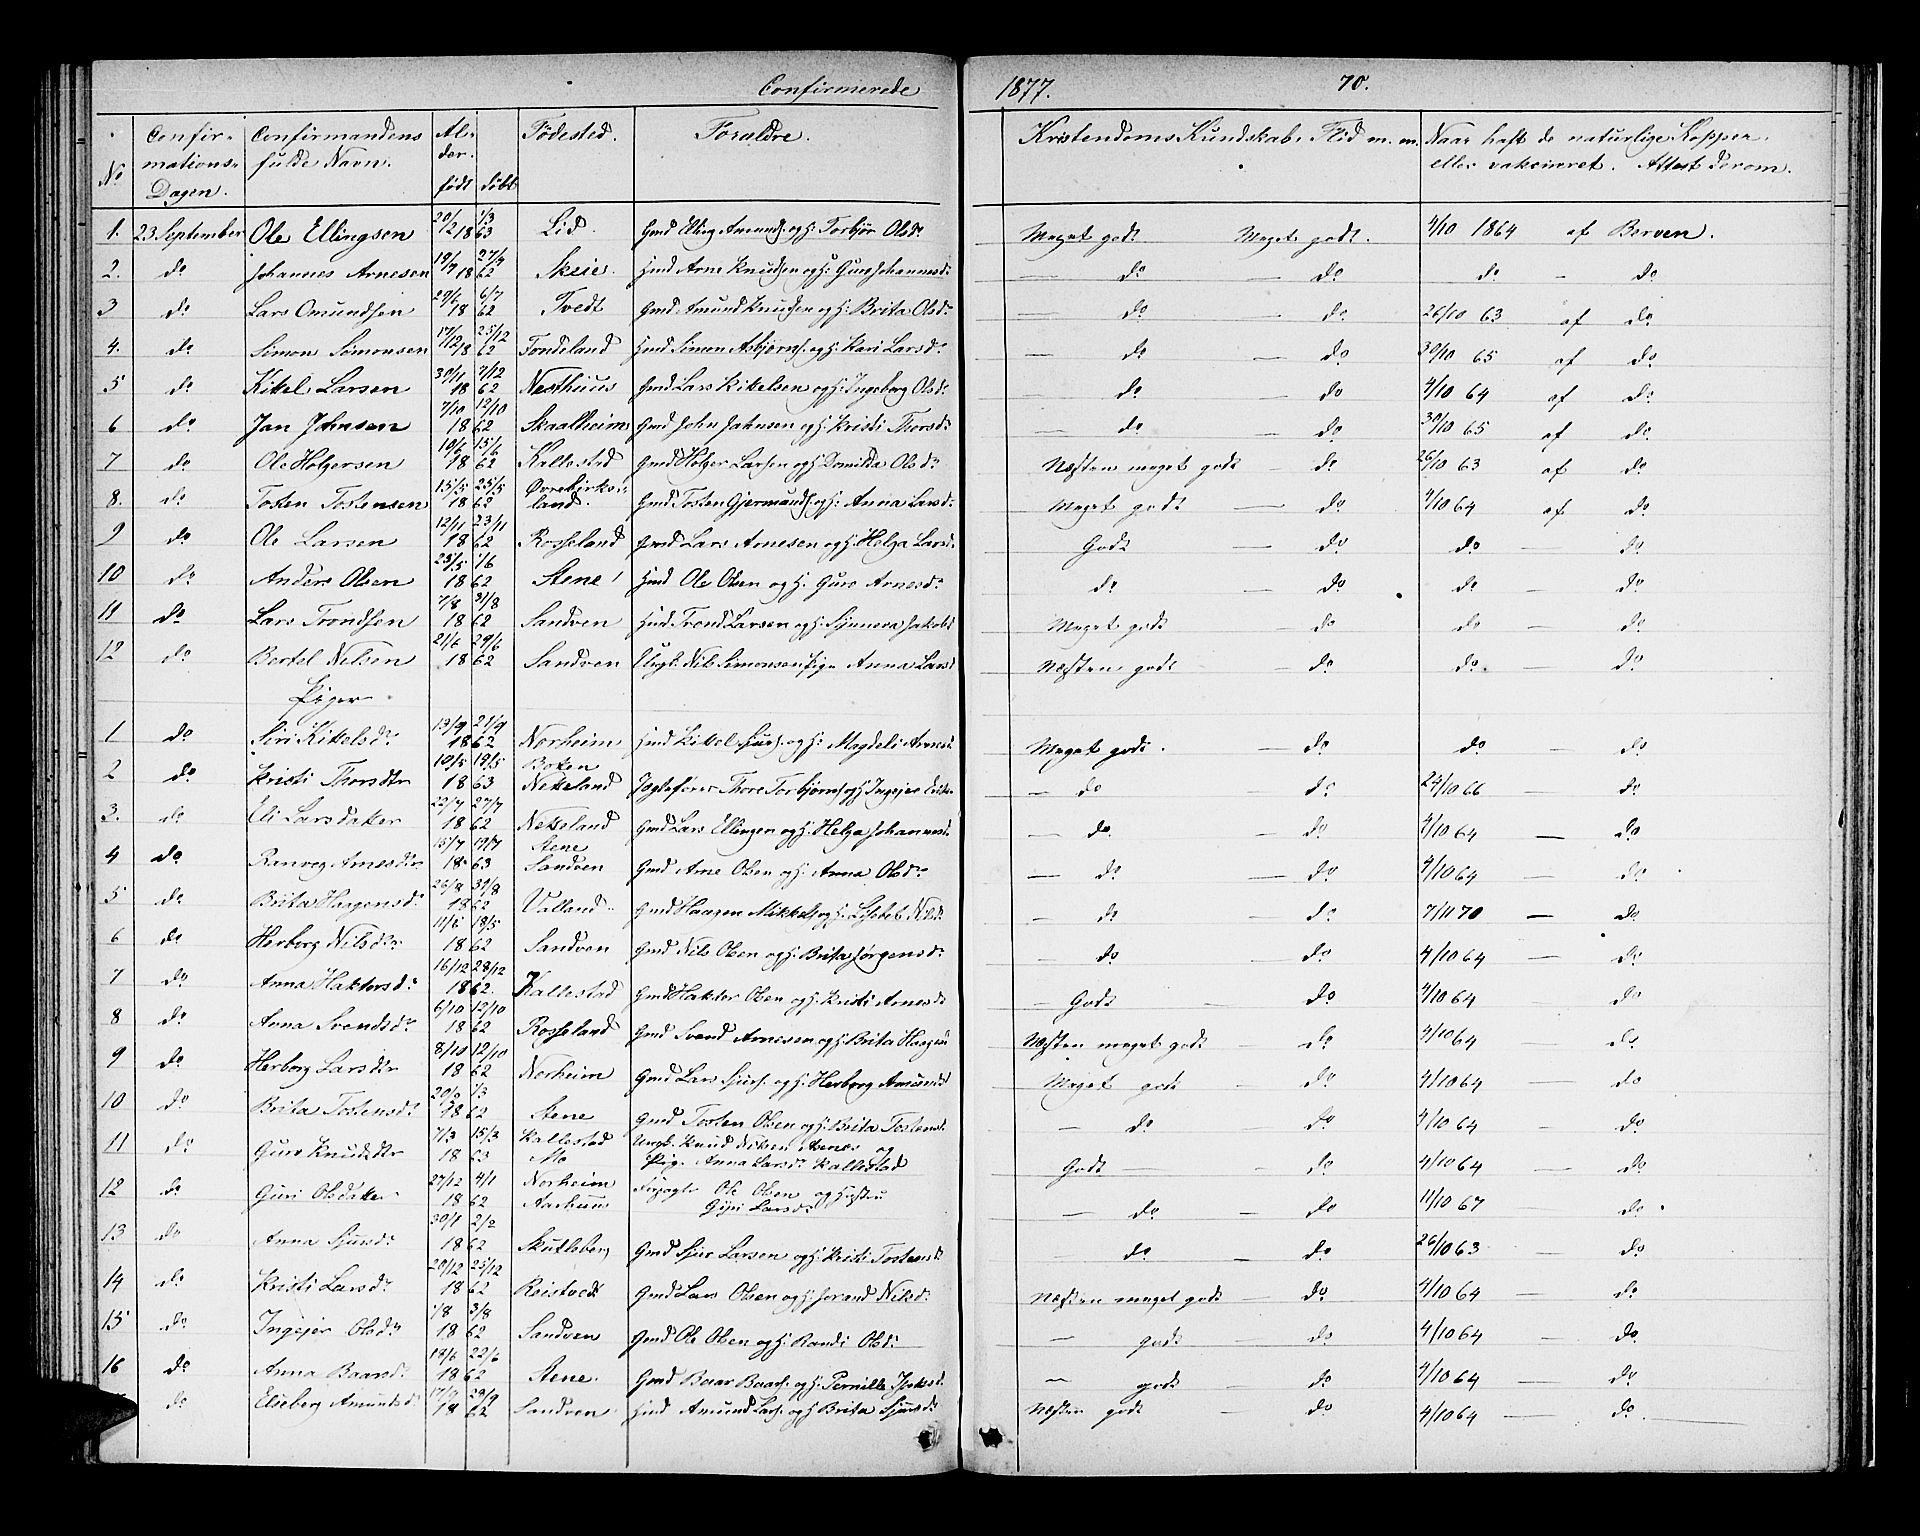 Confirmerede 1877. 70.
No Confirmations-Dagen. Confirmandens fulde Navn. Alder. født døbt Fødested. Foraldre. Kristendoms Kundskab, Flid m. m. Naar haft de naturlige Kopper eller vaksineret. Attest derom.
1. 23 September Ole Ellingsen 20/2 1/3 1863 Lid. Gmd Elling Amunds. og H: Torbjør Olsd. Meget godt Meget godt. 4/10 1864 af Berven.
2. do Johannes Arnesen 19/7 27/7 1862 Skeie. Hmd Arne Knudsen og H: Guro Johannesd. — do — do do - do
3 do Lars Omundsen 29/6 6/7 1862 Tvedt Gmd Amund Knudsen og H: Brita Olsd. — do — do 26/10 63 af do
4. do Simon Simonsen 17/12 25/12 1862 Tondeland Hmd Simon Asbjørns. og H: Kari Larsd. — do — do 30/10 65 af do
5 do Kikel Larsen 30/11 7/12 1862 Nesthuus Gmd Lars Kikelsen og H: Ingeborg Olsd. — do — do 4/10 64 af do
6 do Jan Johnsen 7/10 12/10 1862 Skaalheim Gmd John Johnsen og H: Kristi Thorsd. — do — do 30/10 65 af do
7 do Ole Holgersen 10/6 15/6 1862 Kallestad Gmd Holger Larsen og H: Domilda Olsd. Næsten meget godt — do 26/10 63 af do
8. do Tosten Tostensen 15/5 25/5 1862 Øvrebirkeland. Gmd Tosten Gjermunds. og H: Anna Larsd. Meget godt — do 4/10 64 af do
9 do Ole Larsen 12/11 23/11 1862 Rosseland Gmd Lars Arnesen og H: Helga Larsd. Godt — do do — do
10 do Anders Olsen 25/5 1/6 1862 Stene Hmd Ole Olsen og H. Guro Arnesd. do — do do — do
11 do Lars Trondsen 7/8 31/8 1862 Sandven Hmd Trond Larsen og H: Sjuneva Jakobsd Meget godt — do do — do
12 do Bertel Nilsen 21/6 29/6 1862 Sandven Ungk. Nils Simonsen Pige Anna Larsd Næsten godt — do do — do
Piger
1 do Siri Kikelsd. 13/9 21/9 1862 Norheim Hmd Kikel Sjurs. og H: Magdeli Arnesd Meget godt. — do do — do
2 do Kristi Thorsdtr 10/5 19/5 1863 Boken Nekeland Thore Torbjørns. og H: Ingejer — do — do 24/10 66 — do
3. do Eli Larsdatter 22/7 27/7 1862 Nekeland Gmd Lars Ellingen og H: Helga Johannesd. — do — do 4/10 64 — do
4 do Ranveg Arnesdtr 15/7 19/7 1863 Stene Sandven Gmd Arne Olsen og H: Anna Olsd. — do — do 4/10 64 — do
5 do Brita Haagensd. 26/8 31/8 1862 Valland Gmd Haagen Mikkels. og H: Lisebet Nilsd. — do — do 7/11 70 — do
6 do Herborg Nilsdtr 11/5 18/5 1862 Sandven Gmd Nils Olsen og H: Brita Jørgensd. — do — do 4/10 64 — do
7 do Anna Haktorsd. 16/12 28/12 1862. Kallestad Gmd Haktor Olsen og H: Kristi Arnesd. — Godt — do 4/10 64 — do
8 do Anna Svendsd. 6/10 12/10 1862 Rosseland Gmd Svend Arnesen og H: Brita Haagensd Næsten meget godt — do 4/10 64 — do
9 do Herborg Larsdtr 8/10 12/10 1862 Norheim Gmd Lars Sjurs. og H: Herborg Amundsd Meget godt — do 4/10 64 — do
10 do Brita Tostensd. 20/2 1/3 1862 Stene Gmd Tosten Olsen og H: Brita Tostensd. — do — do 4/10 64 — do
11 do Guro Knudsdtr 7/3 15/3 1863 Kallestad Mo Ungk. Knud Nilsen Stene og Pig. Anna Larsd. Kallestad Godt — do 4/10 64 — do
12 do Guri Olsdatter 27/12 4/1 1862 Norheim Aarhuus Ole Olsen og Hustru Guri Larsd. — do — do 11/10 67 — do
13 do Anna Sjursd. 30/1 2/2 1862 Skutlaberg Gmd Sjur Larsen og H: Kristi Tostensd. do — do 26/10 63 — do
14 do Kristi Larsd. 20/12 25/12 1862 Reistvedt Gmd Lars Olsen og H: Jorand Nilsd. Næsten meget godt — do 4/10 64 — do
15 do Ingejer Olsd. 1/8 3/8 1862 Sandven Gmd Ole Olsen og H: Randi Olsd. — godt — do 4/10 64 — do
16 do Anna Baarsd. 18/6 22/6 1862 Stene. Gmd Baar Baars. og H: Pernille — godt — do 4/10 64 — do
do Elseberg Amundsd. 17/9 28/9 1862 Sandven Hmd Amund Lars. og H: Brita Sjursd. Næsten godt — do 4/10 64 — do